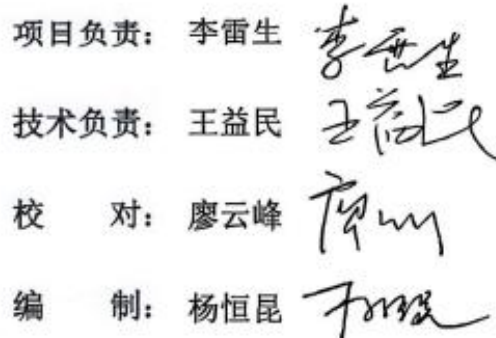 项目负责： 李雷生 李雷生
技术负责： 王益民 王益民
校 对： 廖云峰
编 制： 杨恒昆